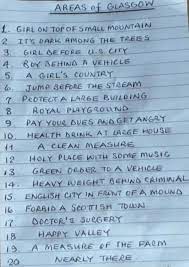 AREAS OF GLASGOW
1. GIRL ON TOP OF SMALL MOUNTAIN
2. IT'S DARK AMONG THE TREES
3. GIRL BEFORE U.S. CITY
4. BOY BEHIND A VEHICLE
5. A GIRL'S COUNTRY
6. JUMP BEFORE THE STREAM
7. PROTECT A LARGE BUILDING
8 ROYAL PLAYGROUND
9 PAY YOUR DUES AND GET ANGRY
10. HEALTH DRINK AT LARGE HOUSE
11 A CLEAN MEASURE
12 HOLY PLACE WITH SOME MUSIC
13 GREEN ORDER TO A VEHICLE
14. HEAVY WEIGHT BEHIND CRIMINAL
15. ENGLISH CITY IN FRONT OF A MOUND
16 FORBID A SCOTTISH TOWN
17 DOCTOR'S SURGERY
18 HAPPY VALLEY
19. A MEASURE OF THE FARM
20 NEARLY THERE